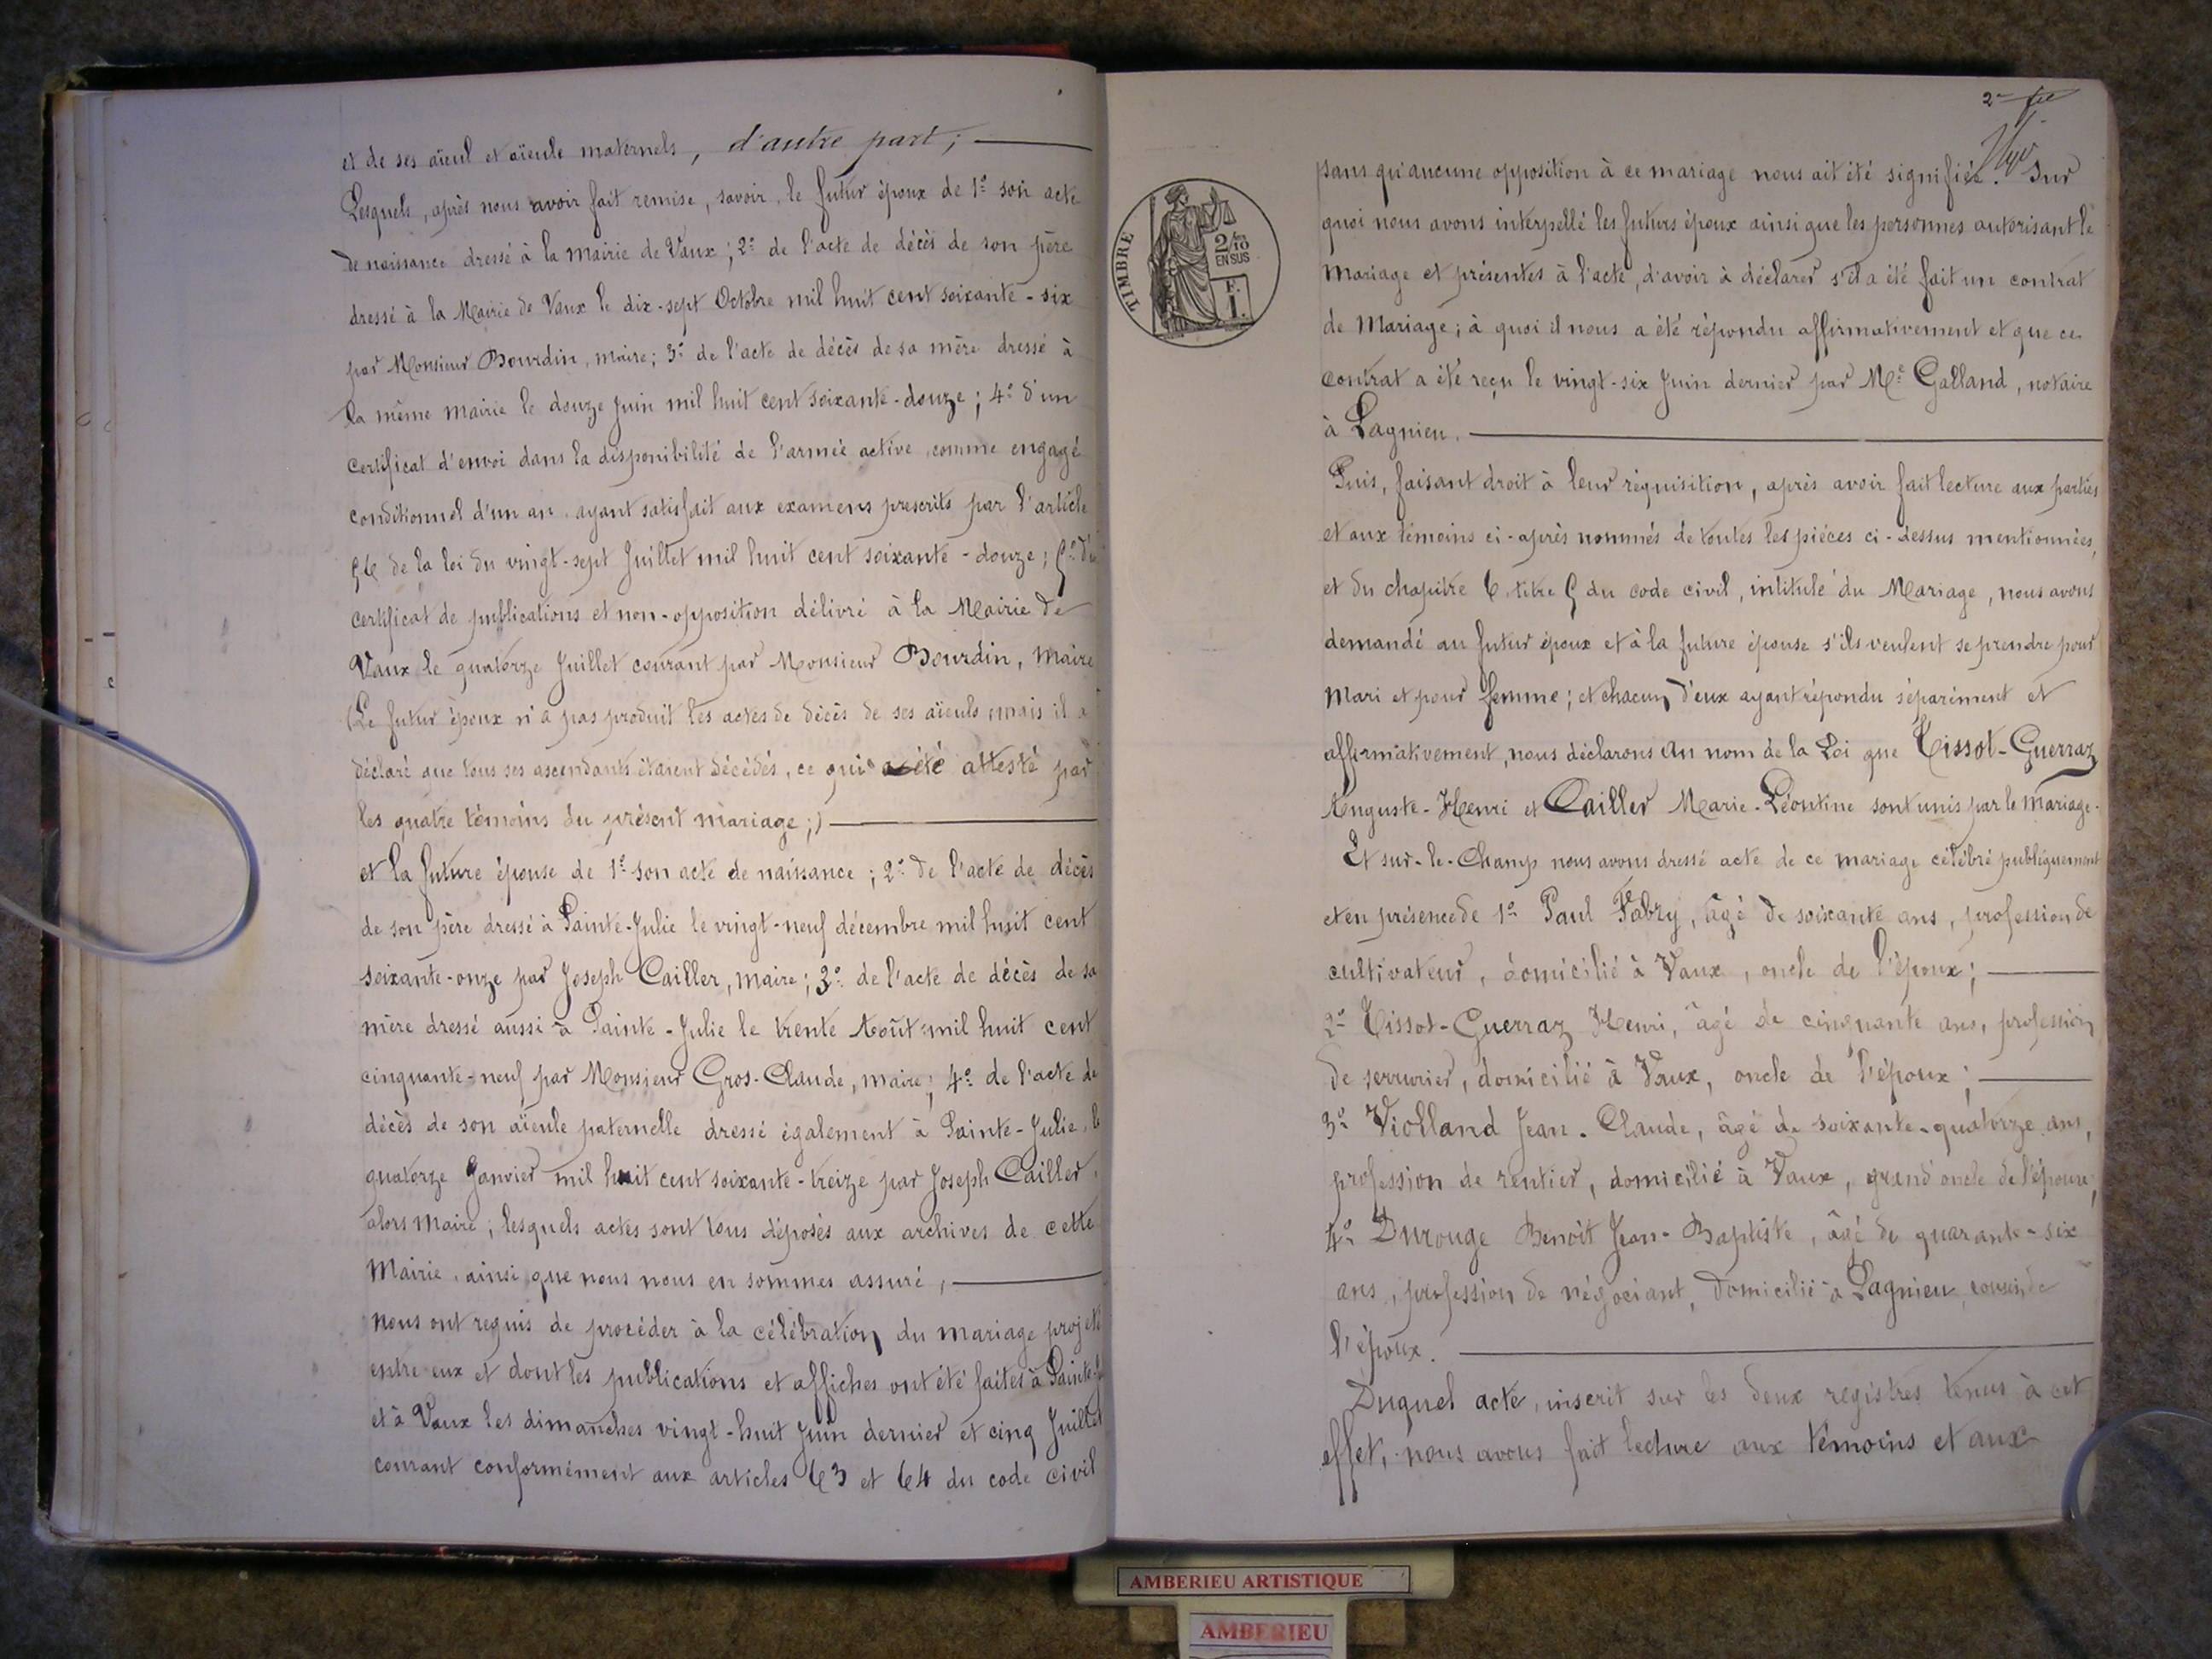 et de ses aïeul et aïeule maternels, d'autre part;
Lesquels, après nous avoir fait remise, savoir, le futur époux de 1º son acte
de naissance dressé à la mairie de Vaux; 2º de l'acte de décès de son père
dressé à la Mairie de Vaux le dix-sept Octobre mil huit cent soixante-six
par Monsieur Bourdin, maire; 3º de l'acte de décès de sa mère dressé à
la même mairie le douze Juin mil huit cent soixante-douze; 4º d'un
certificat d'envoi dans la disponibilité de l'armée active, comme engagé
conditionnel d'un an, ayant satisfait aux examens prescrits par l'article
56 de la loi du vingt-sept Juillet mil huit cent soixante-douze; 5º du
certificat de publications et non-opposition délivré à la Mairie de
Vaux le quatorze Juillet courant par Monsieur Bourdin, Maire
(Le futur époux n'a pas produit les actes de décès de ses aïeuls mais il a
déclaré que tous ses ascendants étaient décédés, ce qui a été attesté par
les quatre témoins du présent mariage;)
et la future épouse de 1º son acte de naissance; 2º de l'acte de décès
de son père dressé à Sainte-Julie le vingt-neuf décembre mil huit cent
soixante-onze par Joseph Cailler, maire; 3º de l'acte de décès de sa
mère dressé aussi à Sainte-Julie le trente Août mil huit cent
cinquante-neuf par Monsieur Gros-Claude, maire; 4º de l'acte de
décès de son aïeule paternelle dressé également à Sainte-Julie, le
quatorze Janvier mil huit cent soixante-treize par Joseph Cailler,
alors Maire; lesquels actes sont tous déposés aux archives de cette
Mairie, ainsi que nous nous en sommes assuré,
nous ont requis de procéder à la célébration du mariage projeté
entre eux et dont les publications et affiches ont été faites à Sainte-J
et à Vaux les dimanches vingt-huit Juin dernier et cinq Juillet
courant conformément aux articles 63 et 64 du code civil
2e
TIMBRE
2/10
EN SUS
F.
1.
sans qu'aucune opposition à ce mariage nous ait été signifiée. Sur
quoi nous avons interpellé les futurs époux ainsi que les personnes autorisant le
mariage et présentes à l'acte, d'avoir à déclarer s'il a été fait un contrat
de Mariage; à quoi il nous a été répondu affirmativement et que ce
contrat a été reçu le vingt-six Juin dernier par Me Galland, notaire
à Lagnieu.
Puis, faisant droit à leur réquisition, après avoir fait lecture aux parties
et aux témoins ci-après nommés de toutes les pièces ci-dessus mentionnées,
et du chapitre 6, titre 5 du code civil, intitulé du Mariage, nous avons
demandé au futur époux et à la future épouse s'ils veulent se prendre pour
Mari et pour femme; et chacun d'eux ayant répondu séparément et
affirmativement, nous déclarons au nom de la Loi que Tissot-Guerraz
Auguste-Henri et Cailler Marie-Léontine sont unis par le mariage.
Et sur-le-Champ nous avons dressé acte de ce mariage célébré publiquement
et en présence de 1º Paul Fabry, âgé de soixante ans, profession de
cultivateur, domicilié à Vaux, oncle de l'époux;
2º Tissot-Guerraz Henri, âgé de cinquante ans, profession
de serrurier, domicilié à Vaux, oncle de l'époux;
3º Violland Jean-Claude, âgé de soixante-quatorze ans,
profession de rentier, domicilié à Vaux, grand'oncle de l'épouse,
4º Durouge Benoît Jean-Baptiste, âgé de quarante-six
ans, profession de négociant, domicilié à Lagnieu, cousin de
l'époux.
Duquel acte, inscrit sur les deux registres tenus à cet
effet, nous avons fait lecture aux témoins et aux
AMBERIEU ARTISTIQUE
AMBERIEU